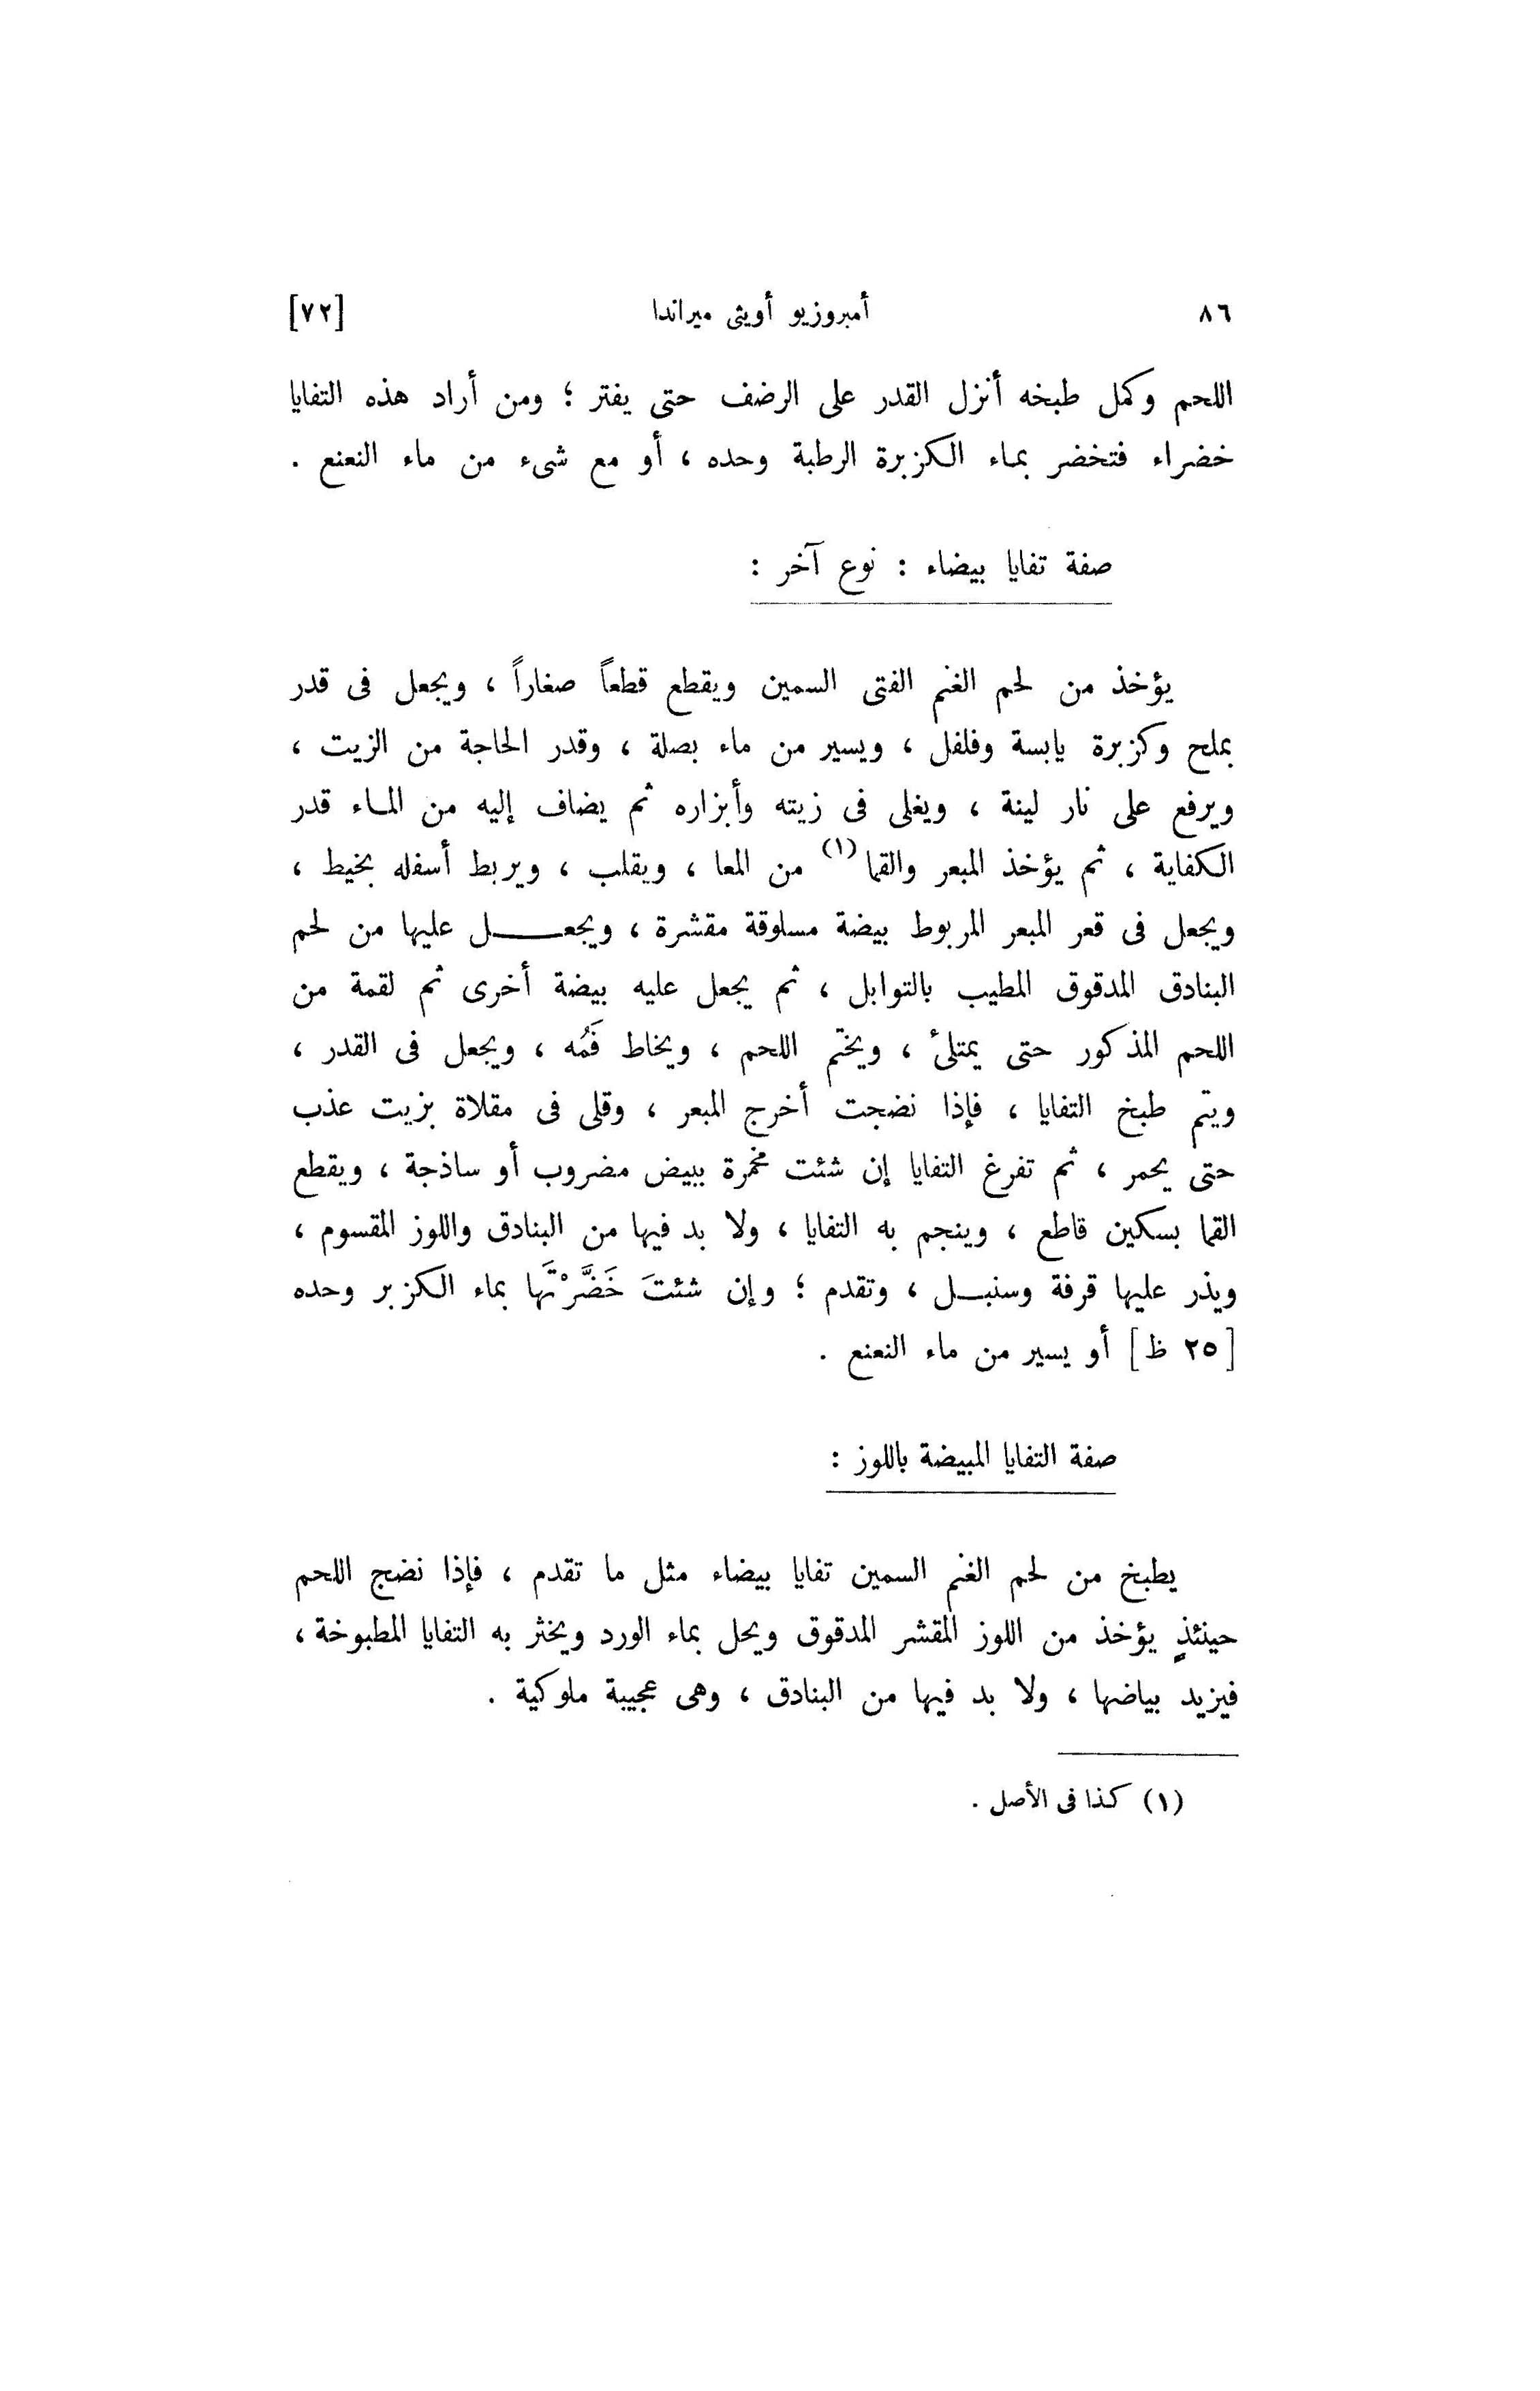 ٨٦ أمبروزيو أويثى ميراندا [٧٢]
اللحم وكمل طبخه أنزل القدر على الرضف حتى يفتر ؛ ومن أراد هذه التفايا
خضراء فتخضر بماء الكزبرة الرطبة وحده ، أو مع شىء من ماء النعنع .
صفة تفايا بيضاء : نوع آخر :
يؤخذ من لحم الغنم الفتى السمين ويقطع قطعاً صغاراً ، ويجعل فى قدر
بملح وكزبرة يابسة وفلفل ، ويسير من ماء بصلة ، وقدر الحاجة من الزيت ،
ويرفع على نار لينة ، ويغلى فى زيته وأبزاره ثم يضاف إليه من الماء قدر
الكفاية ، ثم يؤخذ المبعر والقما (١) من المعا ، ويقلب ، ويربط أسفله بخيط ،
ويجعل فى قعر المبعر المربوط بيضة مسلوقة مقشرة ، ويجعـــــل عليها من لحم
البنادق المدقوق المطيب بالتوابل ، ثم يجعل عليه بيضة أخرى ثم لقمة من
اللحم المذكور حتى يمتلئ ، ويختم اللحم ، ويخاط فَمُه ، ويجعل فى القدر ،
ويتم طبخ التفايا ، فإذا نضجت أخرج المبعر ، وقلى فى مقلاة بزيت عذب
حتى يحمر ، ثم تفرغ التفايا إن شئت مخمرة ببيض مضروب أو ساذجة ، ويقطع
القما بسكين قاطع ، وينجم به التفايا ، ولا بد فيها من البنادق واللوز المقسوم ،
ويذر عليها قرفة وسنبــل ، وتقدم ؛ وإن شئتَ خَضَّرْتَها بماء الكزبر وحده
[٢٥ ظ] أو يسير من ماء النعنع .
صفة التفايا المبيضة باللوز :
يطبخ من لحم الغنم السمين تفايا بيضاء مثل ما تقدم ، فإذا نضج اللحم
حينئذٍ يؤخذ من اللوز المقشر المدقوق ويحل بماء الورد ويخثر به التفايا المطبوخة ،
فيزيد بياضها ، ولا بد فيها من البنادق ، وهى عجيبة ملوكية .
(١) كذا فى الأصل .